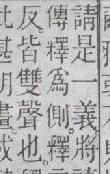 請是一義將
傳釋為側釋
反皆雙聲也
此甚明畫